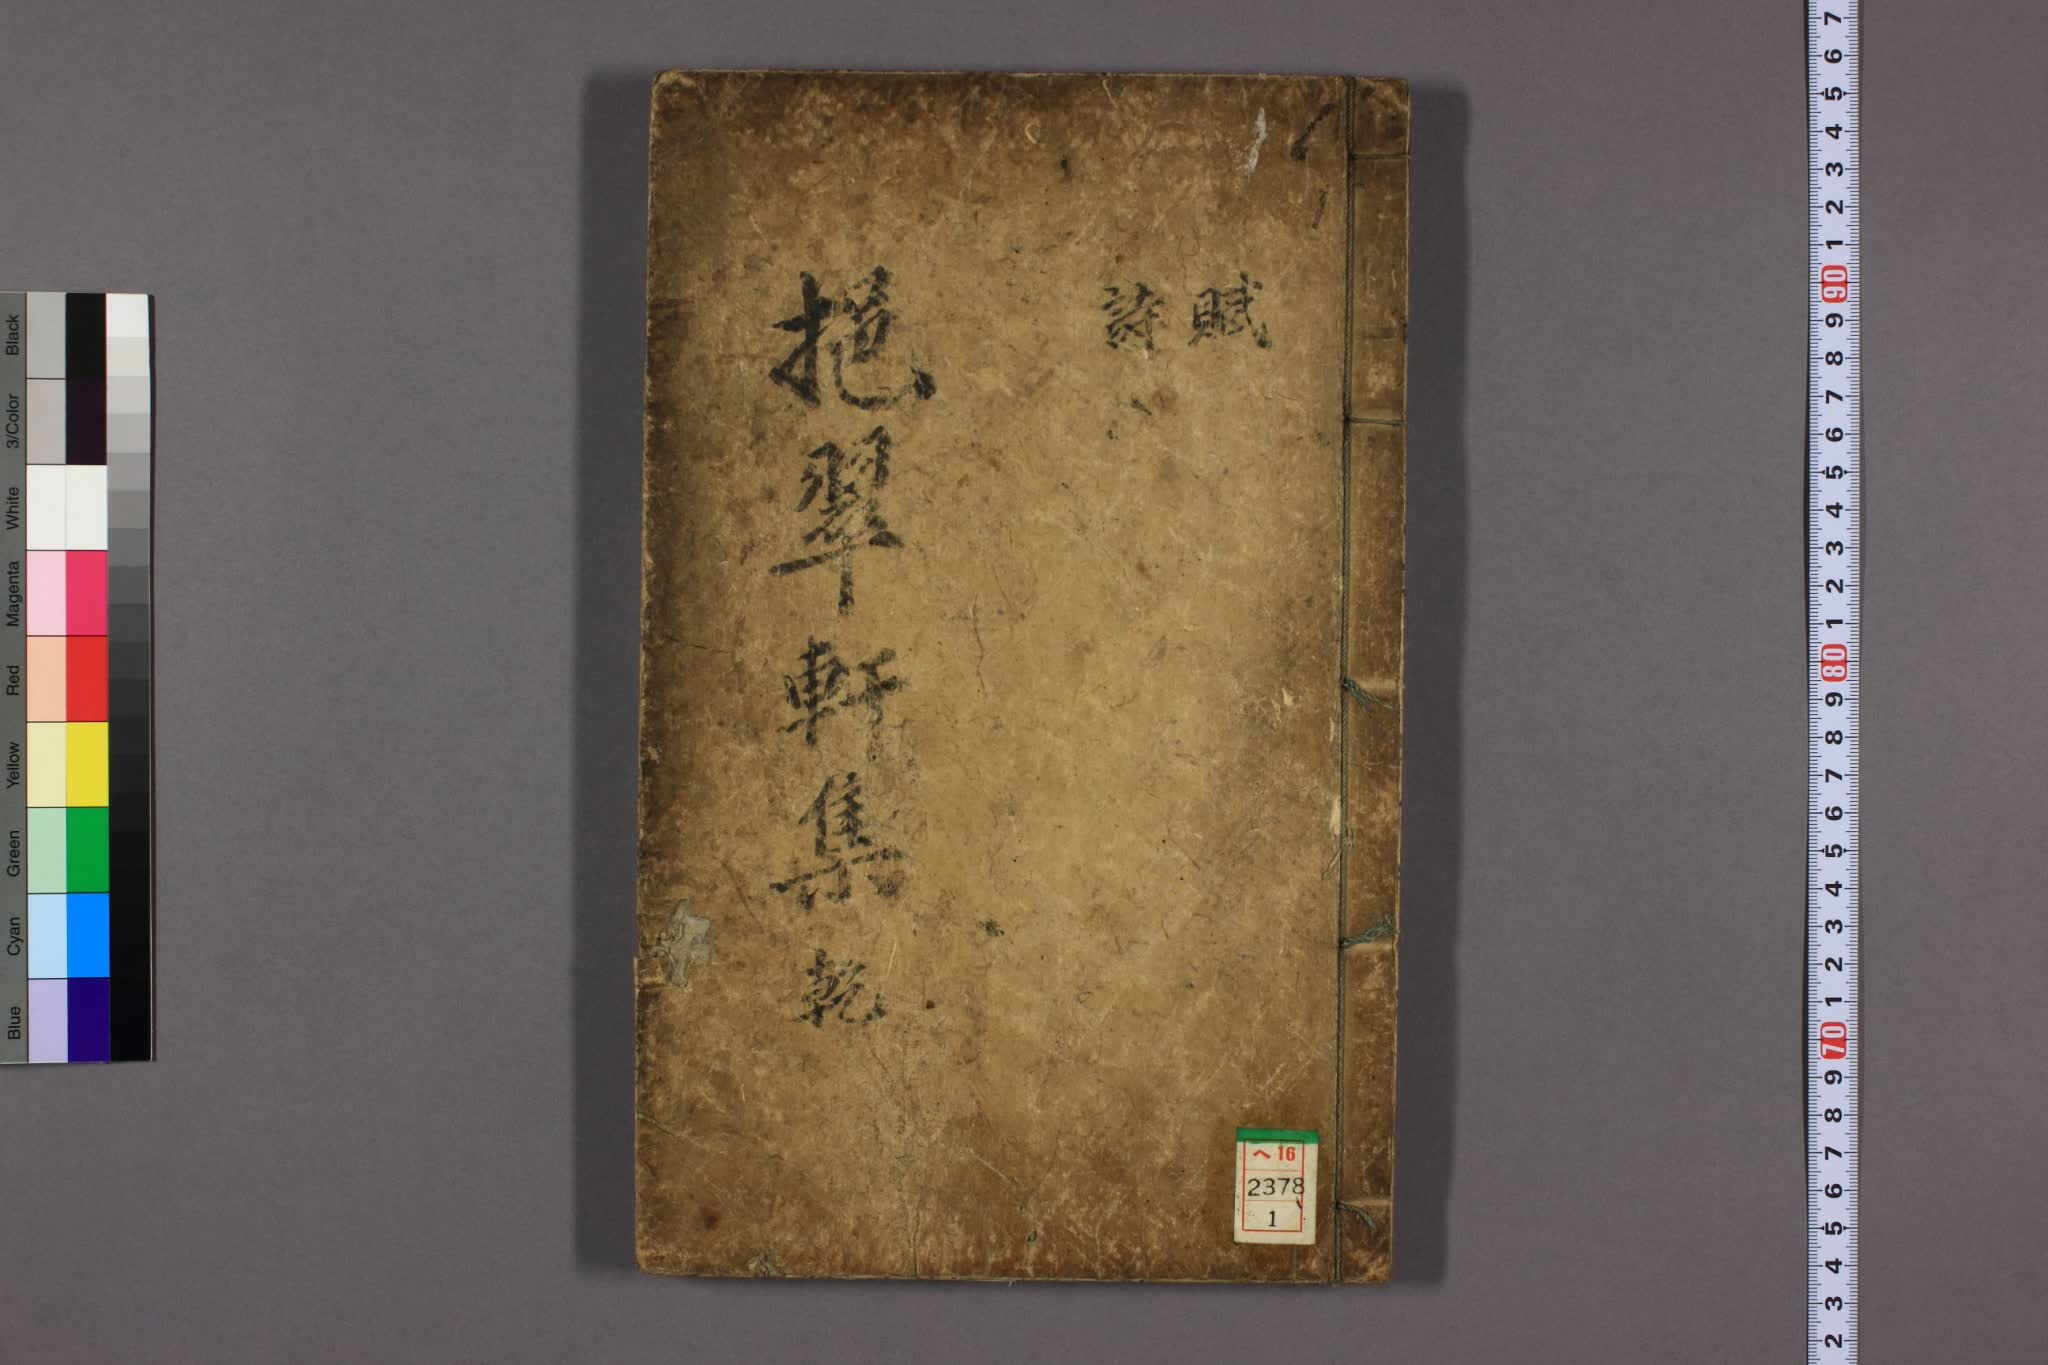 賦
詩
挹翠軒集 乾
ヘ 16
2378
1
Black
3/Color
White
Magenta
Red
Yellow
Green
Cyan
Blue
7
6
5
4
3
2
1
90
9
8
7
6
5
4
3
2
1
80
9
8
7
6
5
4
3
2
1
70
9
8
7
6
5
4
3
2